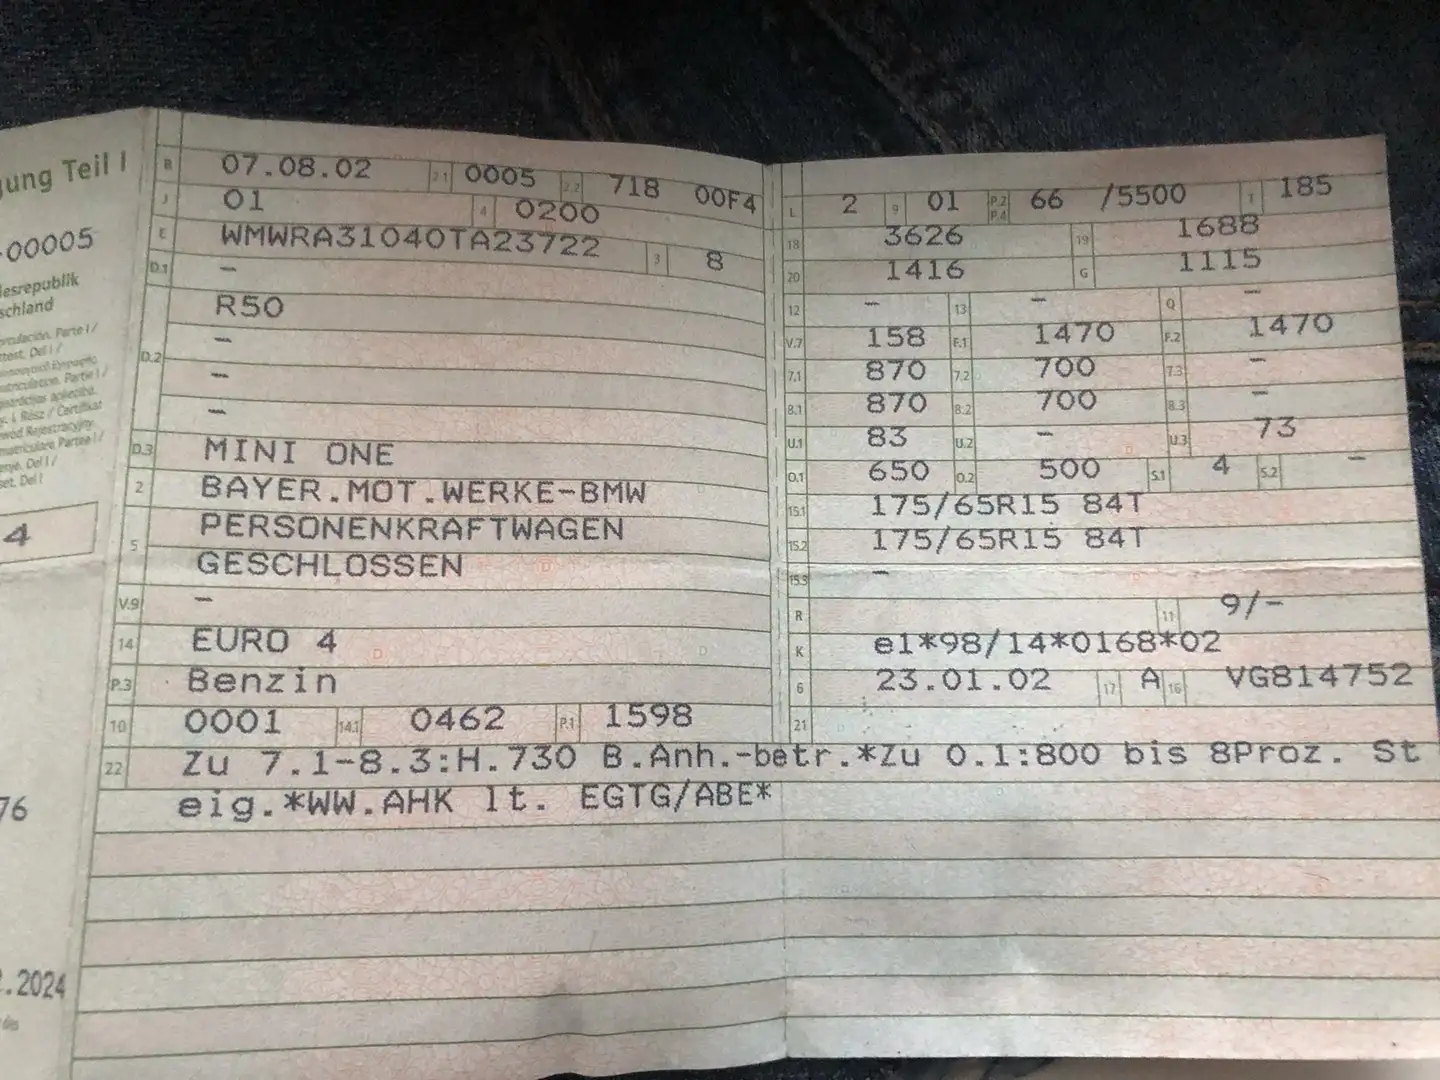 gung Teil I
-00005
desrepublik
schland
4
76
.2024
B 07.08.02 2.1 0005 2.2 718 00F4
J 01 4 0200
E WMWRA31040TA23722 3 8
D.1 –
D.2 R50
–
–
–
D.3 MINI ONE
2 BAYER.MOT.WERKE-BMW
5 PERSONENKRAFTWAGEN
GESCHLOSSEN
V.9 –
14 EURO 4
P.3 Benzin
10 0001 14.1 0462 P.1 1598
L 2 9 01 P.2 P.4 66 /5500 T 185
18 3626 19 1688
20 1416 G 1115
12 – 13 – Q –
V.7 158 F.1 1470 F.2 1470
7.1 870 7.2 700 7.3 –
8.1 870 8.2 700 8.3 –
U.1 83 U.2 – U.3 73
O.1 650 O.2 500 S.1 4 S.2 –
15.1 175/65R15 84T
15.2 175/65R15 84T
15.3 –
R 11 9/–
K e1*98/14*0168*02
6 23.01.02 17 A 16 VG814752
21
22 Zu 7.1-8.3:H.730 B.Anh.-betr.*Zu O.1:800 bis 8Proz. St
eig.*WW.AHK lt. EGTG/ABE*